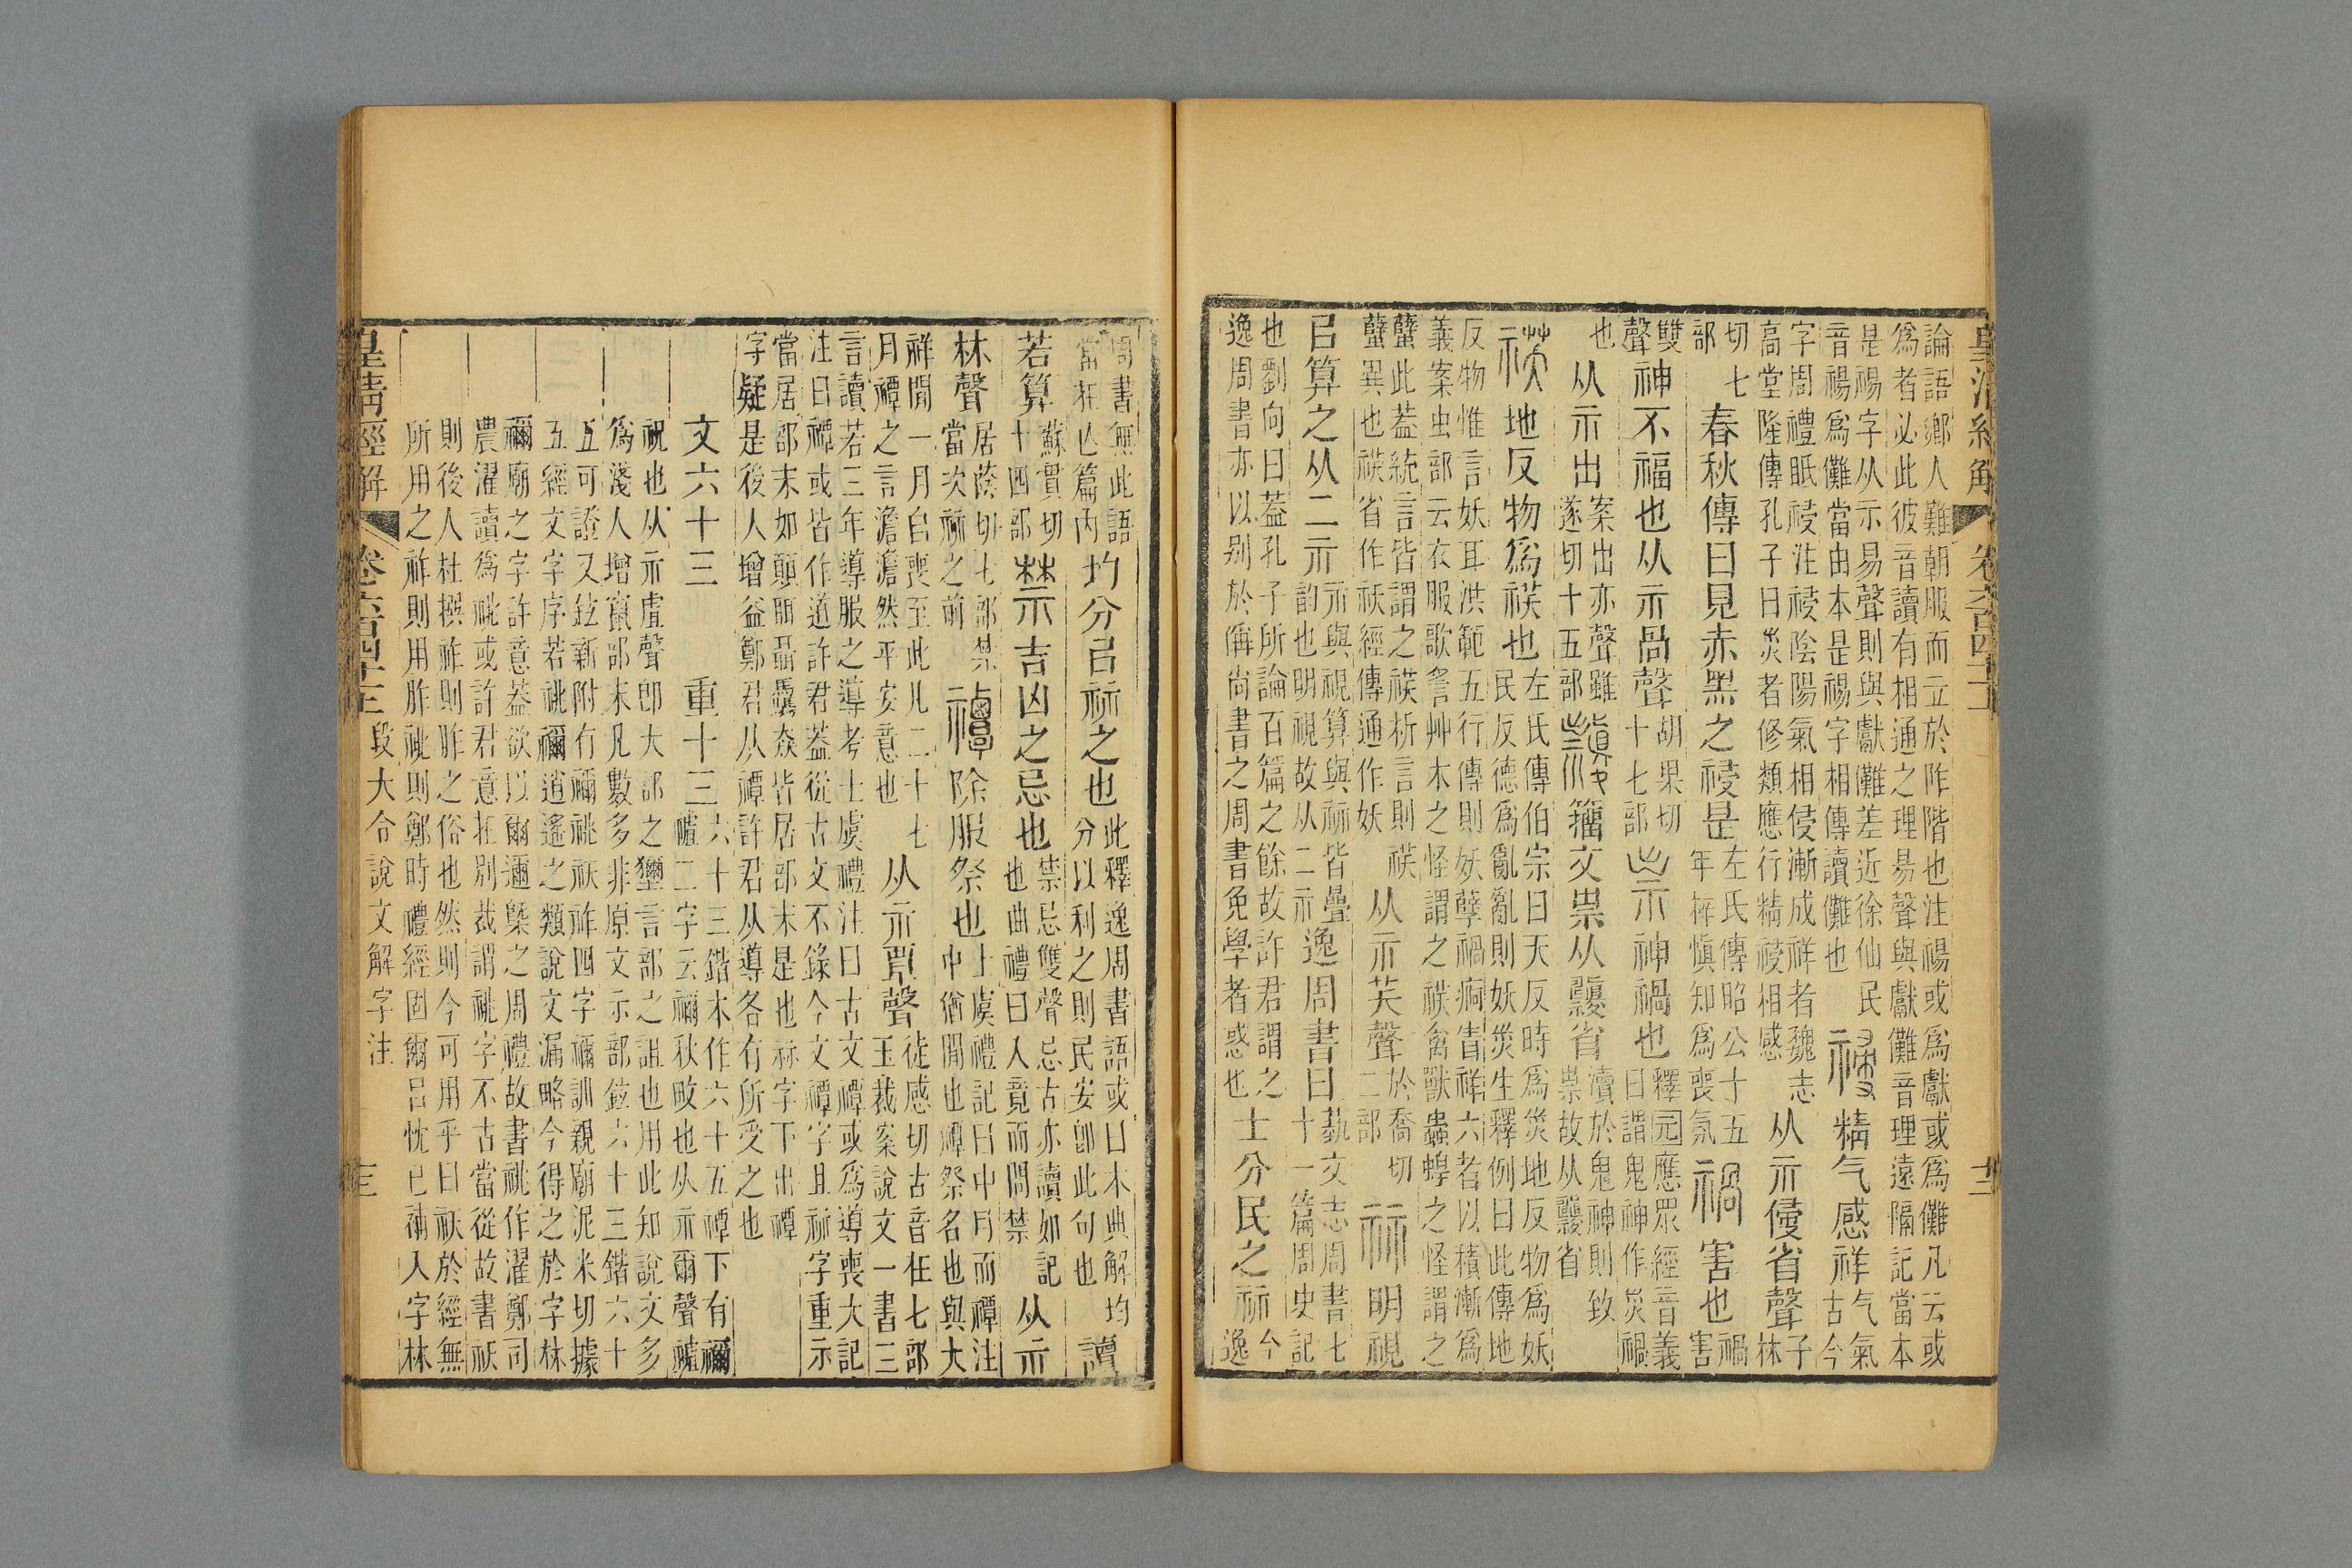 皇清經解 卷六百四十一 十二
論語鄉人難朝服而立於阼階也注禓或爲獻或爲儺凡云或
爲者必此彼音讀有相通之理昜聲與獻儺音理遠隔記當本
是禓字从示易聲則與獻儺差近徐仙民音禓爲儺當由本是禓字相傳讀儺也 祲 精气感祥 气氣古今
字周禮眡祲注祲陰陽氣相侵漸成祥者魏志高堂隆傳孔子曰災者修類應行精祲相感 从示𠊱省聲 子林
切七部 春秋傳曰見赤黑之祲是 左氏傳昭公十五年梓愼知爲喪氛 禍 害也 禍害
雙聲 神不福也从示咼聲 胡果切十七部 祟 神禍也 釋园應眾經音義曰謂鬼神作災禍
也 从示出 案出亦聲雖遂切十五部 籒文祟从䵼省 瀆於鬼神則致祟故从䵼省
䄏 地反物爲䄏也 左氏傳伯宗曰天反時爲災地反物爲妖民反德爲亂亂則妖災生釋例曰此傳地
反物惟言妖耳洪範五行傳則妖孽禍痾眚祥六者以積漸爲
義案虫部云衣服歌䚻艸木之怪謂之䄏禽獸蟲蝗之怪謂之
蠥此葢統言皆謂之䄏析言則䄏蠥異也䄏省作祅經傳通作妖 从示芺聲 於喬切二部 祘 明視
㠯算之从二示 示與視算與祘皆疊韵也明視故从二示 逸周書曰 埶文志周書七十一篇周史記
也劉向曰葢孔子所論百篇之餘故許君謂之逸周書亦以别於偁尚書之周書免學者惑也 士分民之祘 今逸
周書無此語當在亾篇內 均分㠯祘之也 此釋逸周書語或曰本典解均分以利之則民安卽此句也 讀
若算 蘇貫切十四部 禁 吉凶之忌也 禁忌雙聲忌古亦讀如記也曲禮曰入竟而問禁 从示
林聲 居蔭切七部禁當次祘之前 禫 除服祭也 士虞禮記曰中月而禫注中猶閒也禫祭名也與大
祥閒一月自喪至此凡二十七月禫之言澹澹然平安意也 从示覃聲 徒感切古音在七部玉裁案說文一書三
言讀若三年導服之導考士虞禮注曰古文禫或爲導喪大記
注曰禫或皆作道許君葢從古文不錄今文禫字且祘字重示
當居部末如顛聑聶驫猋皆居部末是也祘字下出禫
字疑是後人增益鄭君从禫許君从導各有所受之也
文六十三 重十三 六十三鍇本作六十五禫下有禰䄡二字云禰秋畋也从示爾聲䄡
祝也从示虘聲卽大部之獮言部之詛也用此知說文多
爲淺人增竄部末凡數多非原文示部鉉六十三鍇六十
五可證又鉉新附有禰祧祆祚四字禰訓親廟泥米切據
五經文字序若祧禰逍遙之類說文漏略今得之於字林
禰廟之字許意葢欲以爾邇槩之周禮故書祧作濯鄭司
農濯讀爲祧或許君意在別裁謂祧字不古當從故書祆
則後人杜撰祚則胙之俗也然則今可用乎曰祆於經無
所用之祚則用胙祧則鄭時禮經固爾呂忱已補入字林
皇清經解 卷六百四十一 段大令說文解字注 十三